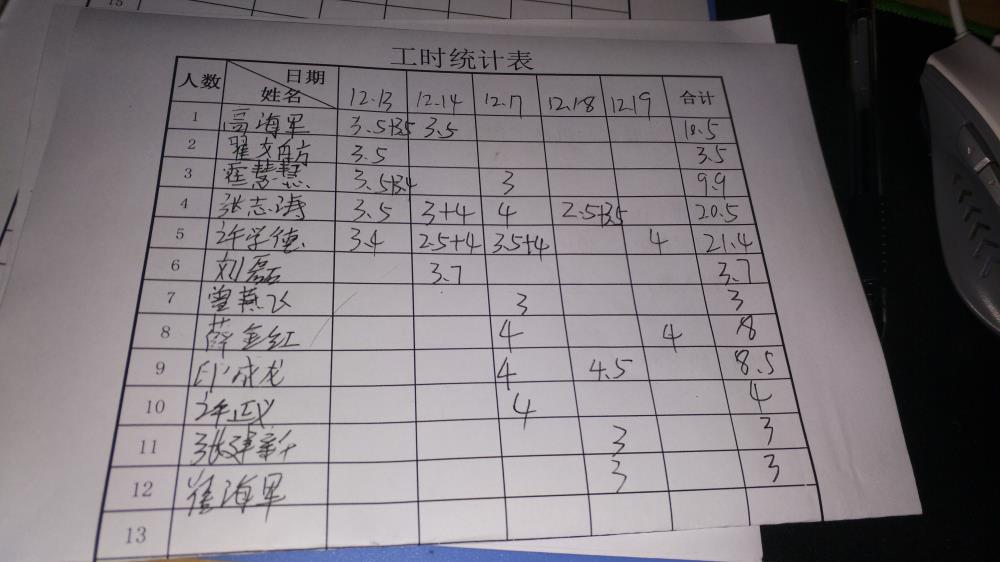 15
工时统计表
人数 日期 姓名 12.13 12.14 12.17 12.18 12.19 合计
1 高海军 3.5+3.5 3.5 10.5
2 翟文方 3.5 3.5
3 崔慧慧 3.5+3.4 3 9.9
4 张志涛 3.5 3+4 4 2.5+3.5 20.5
5 许学德 3.4 2.5+4 3.5+4 4 21.4
6 刘磊 3.7 3.7
7 曾燕飞 3 3
8 薛金红 4 4 8
9 印成龙 4 4.5 8.5
10 许正义 4 4
11 张建新 3 3
12 崔海军 3 3
13